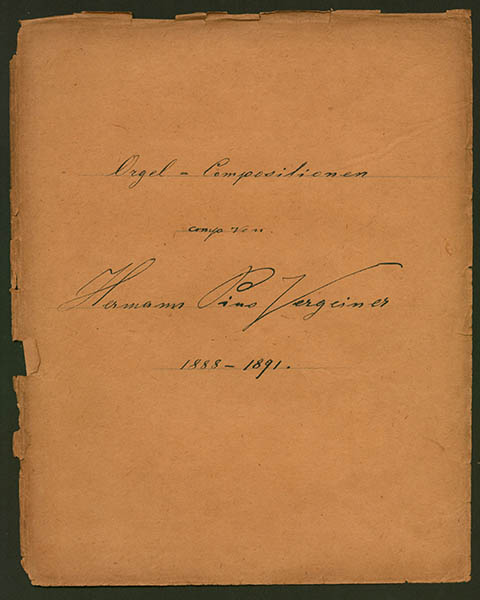 Orgel - Compositionen
comp von
Hermann Pius Vergeiner
1888 - 1891.